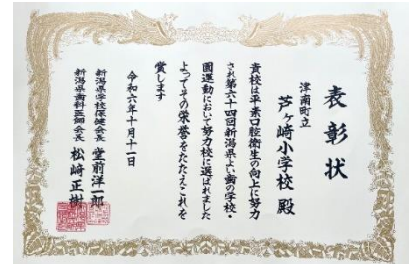 表彰状
津南町立
芦ヶ崎小学校 殿
貴校は平素口腔衛生の向上に努力
され第六十四回新潟県よい歯の学校・
園運動において努力校に選ばれました
よってその栄誉をたたえこれを
賞します
令和六年十月十一日
新潟県学校保健会長 堂前洋一郎
新潟県歯科医師会長 松﨑正樹